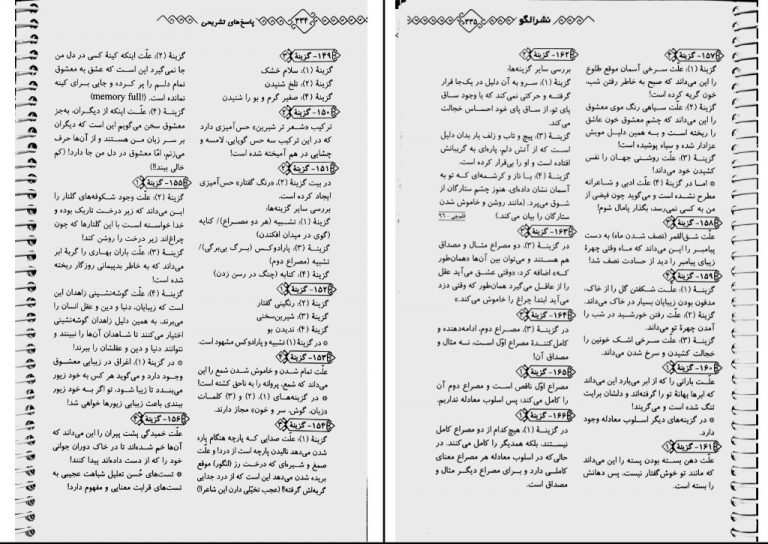 ۳۳۴
پاسخ‌های تشریحی
۱۴۹- گزینهٔ
گزینهٔ (۱): سلام خشک
گزینهٔ (۲): تلخ شنیدن
گزینهٔ (۴): صفیر گرم و بو را شنیدن
۱۵۰- گزینهٔ
ترکیب «شعر تر شیرین» حس‌آمیزی دارد
که در این ترکیب سه حس گویایی، لامسه و
چشایی در هم آمیخته شده است!
۱۵۱- گزینهٔ ۲
در بیت گزینهٔ (۲)، «رنگ گفتار» حس‌آمیزی
ایجاد کرده است.
بررسی سایر گزینه‌ها:
گزینهٔ (۱): تشبیه (هر دو مصراع)/ کنایه
(گوی در میدان افکندن)
گزینهٔ (۳): پارادوکس (برگ بی‌برگی)/
تشبیه (مصراع دوم)
گزینهٔ (۴): کنایه (چنگ در رسن زدن)
۱۵۲- گزینهٔ ۱
گزینهٔ (۲): رنگینی گفتار
گزینهٔ (۳): شیرین‌سخنی
گزینهٔ (۴): ندیدن بو
* در گزینهٔ (۱) تشبیه و پارادوکس مشهود است.
۱۵۳- گزینهٔ ۴
علّت تمام شدن و خاموش شدن شمع را این
می‌داند که شمع، پروانه را به ناحق کشته است!
* در گزینه‌های (۱)، (۲) و (۳) کلمات
«زبان، گوش، سر و خون» مجاز دارند.
۱۵۴- گزینهٔ ۳
گزینهٔ (۱)، علّت صدایی که پارچه هنگام پاره
شدن می‌دهد نالیدن پارچه است از درد! و علّت
صمغ و شیره‌ای که درخت رز (انگور) موقع
بریده شدن می‌دهد این است که از درد جدایی
گریه‌اش گرفته!! (عجب تخیّلی دارن این شاعرا!)
گزینهٔ (۲): علّت اینکه کینهٔ کسی در دل من
جا نمی‌گیرد این است که عشق به معشوق
تمام دلم را پر کرده و جایی برای کینه
نمانده است. (memory full!)
گزینهٔ (۴)، علّت اینکه از دیگران، به‌جز
معشوق سخن می‌گویم این است که دیگران
بر سر زبان من هستند و از آن‌ها حرف
می‌زنم، امّا معشوق در دل من جا دارد! (کم
خالی ببند!!)
۱۵۵- گزینهٔ ۱
گزینهٔ (۲): علّت وجود شکوفه‌های گلنار را
این می‌داند که زیر درخت تاریک بوده و
خدا خواسته است با این گلنارها که چون
چراغ‌اند زیر درخت را روشن کند!
گزینهٔ (۳): علّت باران بهاری را گریهٔ ابر
می‌داند که به خاطر بدپیمانی روزگار ریخته
شده است!
گزینهٔ (۴): علّت گوشه‌نشینی زاهدان این
است که زیبایان، دنیا و دین و عقل انسان را
می‌برند، به همین دلیل زاهدان گوشه‌نشینی
اختیار می‌کنند تا شاهدان آن‌ها را نبینند و
نتوانند دنیا و دین و عقلشان را ببرند!
* در گزینهٔ (۱)، اغراق در زیبایی معشوق
وجود دارد و می‌گوید هر کس به خود زیور
می‌بندد تا زیبا شود، تو اگر به خود زیور
ببندی باعث زیبایی زیورها خواهی شد!
۱۵۶- گزینهٔ
علّت خمیدگی پشت پیران را این می‌داند که
آن‌ها خم شده‌اند تا در خاک دوران جوانی
خود را که از دست داده‌اند پیدا کنند!
* تست‌های حُسن تعلیل شباهت عجیبی به
تست‌های قرابت معنایی و مفهوم دارد!
نشر الگو
۳۳۵
۱۵۷- گزینهٔ ۴
گزینهٔ (۱): علّت سرخی آسمان موقع طلوع
را این می‌داند که صبح به خاطر رفتن شب،
خون گریه کرده است!
گزینهٔ (۲): علّت سیاهی رنگ موی معشوق
را این می‌داند که چشم معشوق خون عاشق
را ریخته است و به همین دلیل مویش
عزادار شده و سیاه پوشیده است!
گزینهٔ (۳): علّت روشنی جهان را نفس
کشیدن خود می‌داند!
* امّا در گزینهٔ (۴) علّت ادبی و شاعرانه
مطرح نشده است و می‌گوید چون فیضی از
من به کسی نمی‌رسد، بگذار پایمال شوم!
۱۵۸- گزینهٔ ۲
علّت شق‌القمر (نصف شدن ماه) به دست
پیامبر را این می‌داند که ماه وقتی چهرهٔ
زیبای پیامبر را دید از حسادت نصف شد!
۱۵۹- گزینهٔ ۴
گزینهٔ (۱): علّت شکفتن گل را از خاک،
مدفون بودن زیبایان بسیار در خاک می‌داند.
گزینهٔ (۲): علّت رفتن خورشید در شب را
آمدن چهرهٔ تو می‌داند.
گزینهٔ (۳): علّت سرخی اشک خونین را
خجالت کشیدن و سرخ شدن می‌داند.
۱۶۰- گزینهٔ ۱
علّت بارانی را که از ابر می‌بارد این می‌داند
که ابرها بهانهٔ تو را گرفته‌اند و دلشان برایت
تنگ شده است و می‌گریند!
* در گزینه‌های دیگر اسلوب معادله وجود
دارد.
۱۶۱- گزینهٔ ۱
علّت دهن بسته بودن پسته را این می‌داند
که مانند تو خوش‌گفتار نیست، پس دهانش
را بسته است.
۱۶۲- گزینهٔ ۲
بررسی سایر گزینه‌ها:
گزینهٔ (۱): سرو به آن دلیل در یک‌جا قرار
گرفته و حرکتی نمی‌کند که با وجود ساق
پای تو، از ساق پای خود احساس خجالت
می‌کند.
گزینهٔ (۳): پیچ و تاب و زلف یار بدان دلیل
است که از آتش دلم، پاره‌ای به گریبانش
افتاده است و او را بی‌قرار کرده است.
گزینهٔ (۴): با ناز و کرشمه‌ای که تو به
آسمان نشان داده‌ای، هنوز چشم ستارگان از
شوق می‌پرد. (مانند روشن و خاموش شدن
ستارگان را بیان می‌کند.)
قلمچی - ۹۶
۱۶۳- گزینهٔ ۳
در گزینهٔ (۳)، دو مصراع مثال و مصداق
هم هستند و می‌توان بین آن‌ها «همان‌طور
که» اضافه کرد: «وقتی عشق می‌آید عقل
را از عاقل می‌گیرد همان‌طور که وقتی دزد
می‌آید ابتدا چراغ را خاموش می‌کند.»
۱۶۴- گزینهٔ ۳
در گزینهٔ (۳)، مصراع دوم، ادامه‌دهنده و
کامل‌کنندهٔ مصراع اوّل است، نه مثال و
مصداق آن!
۱۶۵- گزینهٔ ۱
مصراع اوّل ناقص است و مصراع دوم آن
را کامل می‌کند؛ پس اسلوب معادله نداریم.
۱۶۶- گزینهٔ ۱
در گزینهٔ (۱)، هیچ‌کدام از دو مصراع کامل
نیستند، بلکه همدیگر را کامل می‌کنند. در
حالی‌که در اسلوب معادله هر مصراع معنای
کاملی دارد و برای مصراع دیگر مثال و
مصداق است.